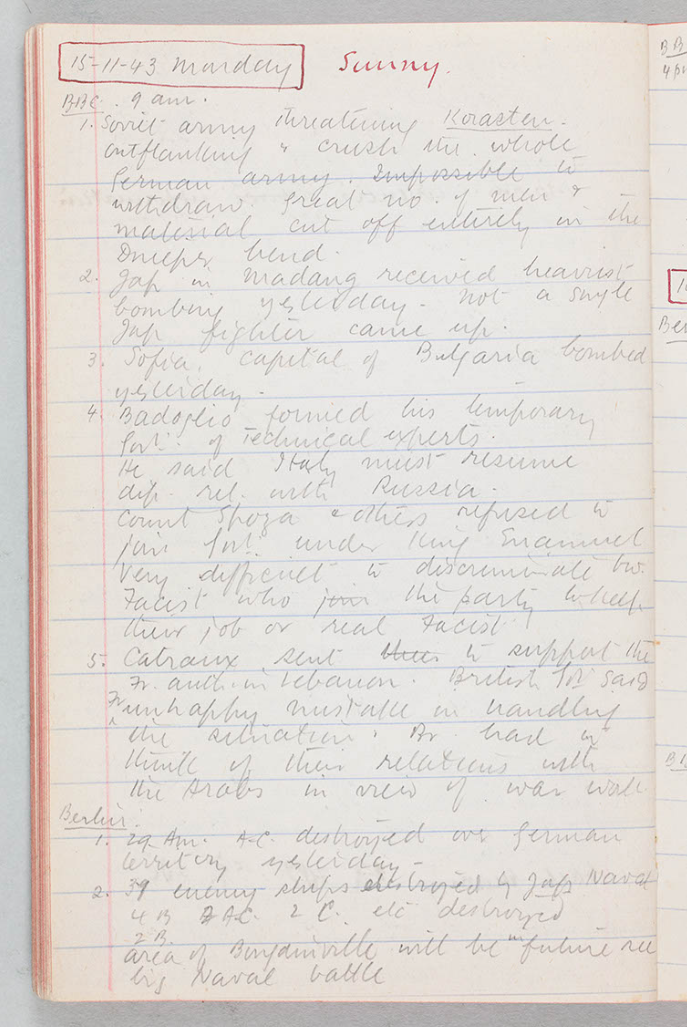 15-11-43 Monday Sunny.
BBC. 9 am.
1. Soviet army threatening Korosten.
outflanking & crush the whole
German army. Impossible to
withdraw great no. of men &
material cut off entirely in the
Dnieper bend.
2. Jap in Madang received heaviest
bombing yesterday. Not a single
Jap fighter came up.
3. Sofia, capital of Bulgaria bombed
yesterday.
4. Badoglio formed his temporary
Govt. of technical experts.
He said Italy must resume
dip. rel. with Russia.
Count Sforza & others refused to
join Govt. under King Emanuel
Very difficult to discriminate bw.
Facist who join the party to keep
their job or real Facist
5. Catroux sent to support the
Fr. auth. in Lebanon. British Gvt said
Fr unhappy mistake in handling
the situation. Br. had to
think of their relations with
the Arabs in view of war
Berlin.
1. 29 Am. A-C. destroyed over German
territory yesterday -
2. 39 enemy ships destroyed by Jap Naval
4 B A.C. 2 C. etc destroyed
2 B.
area of Bougainville will be in future
big Naval battle
BB
4 pm
1
Ber
B